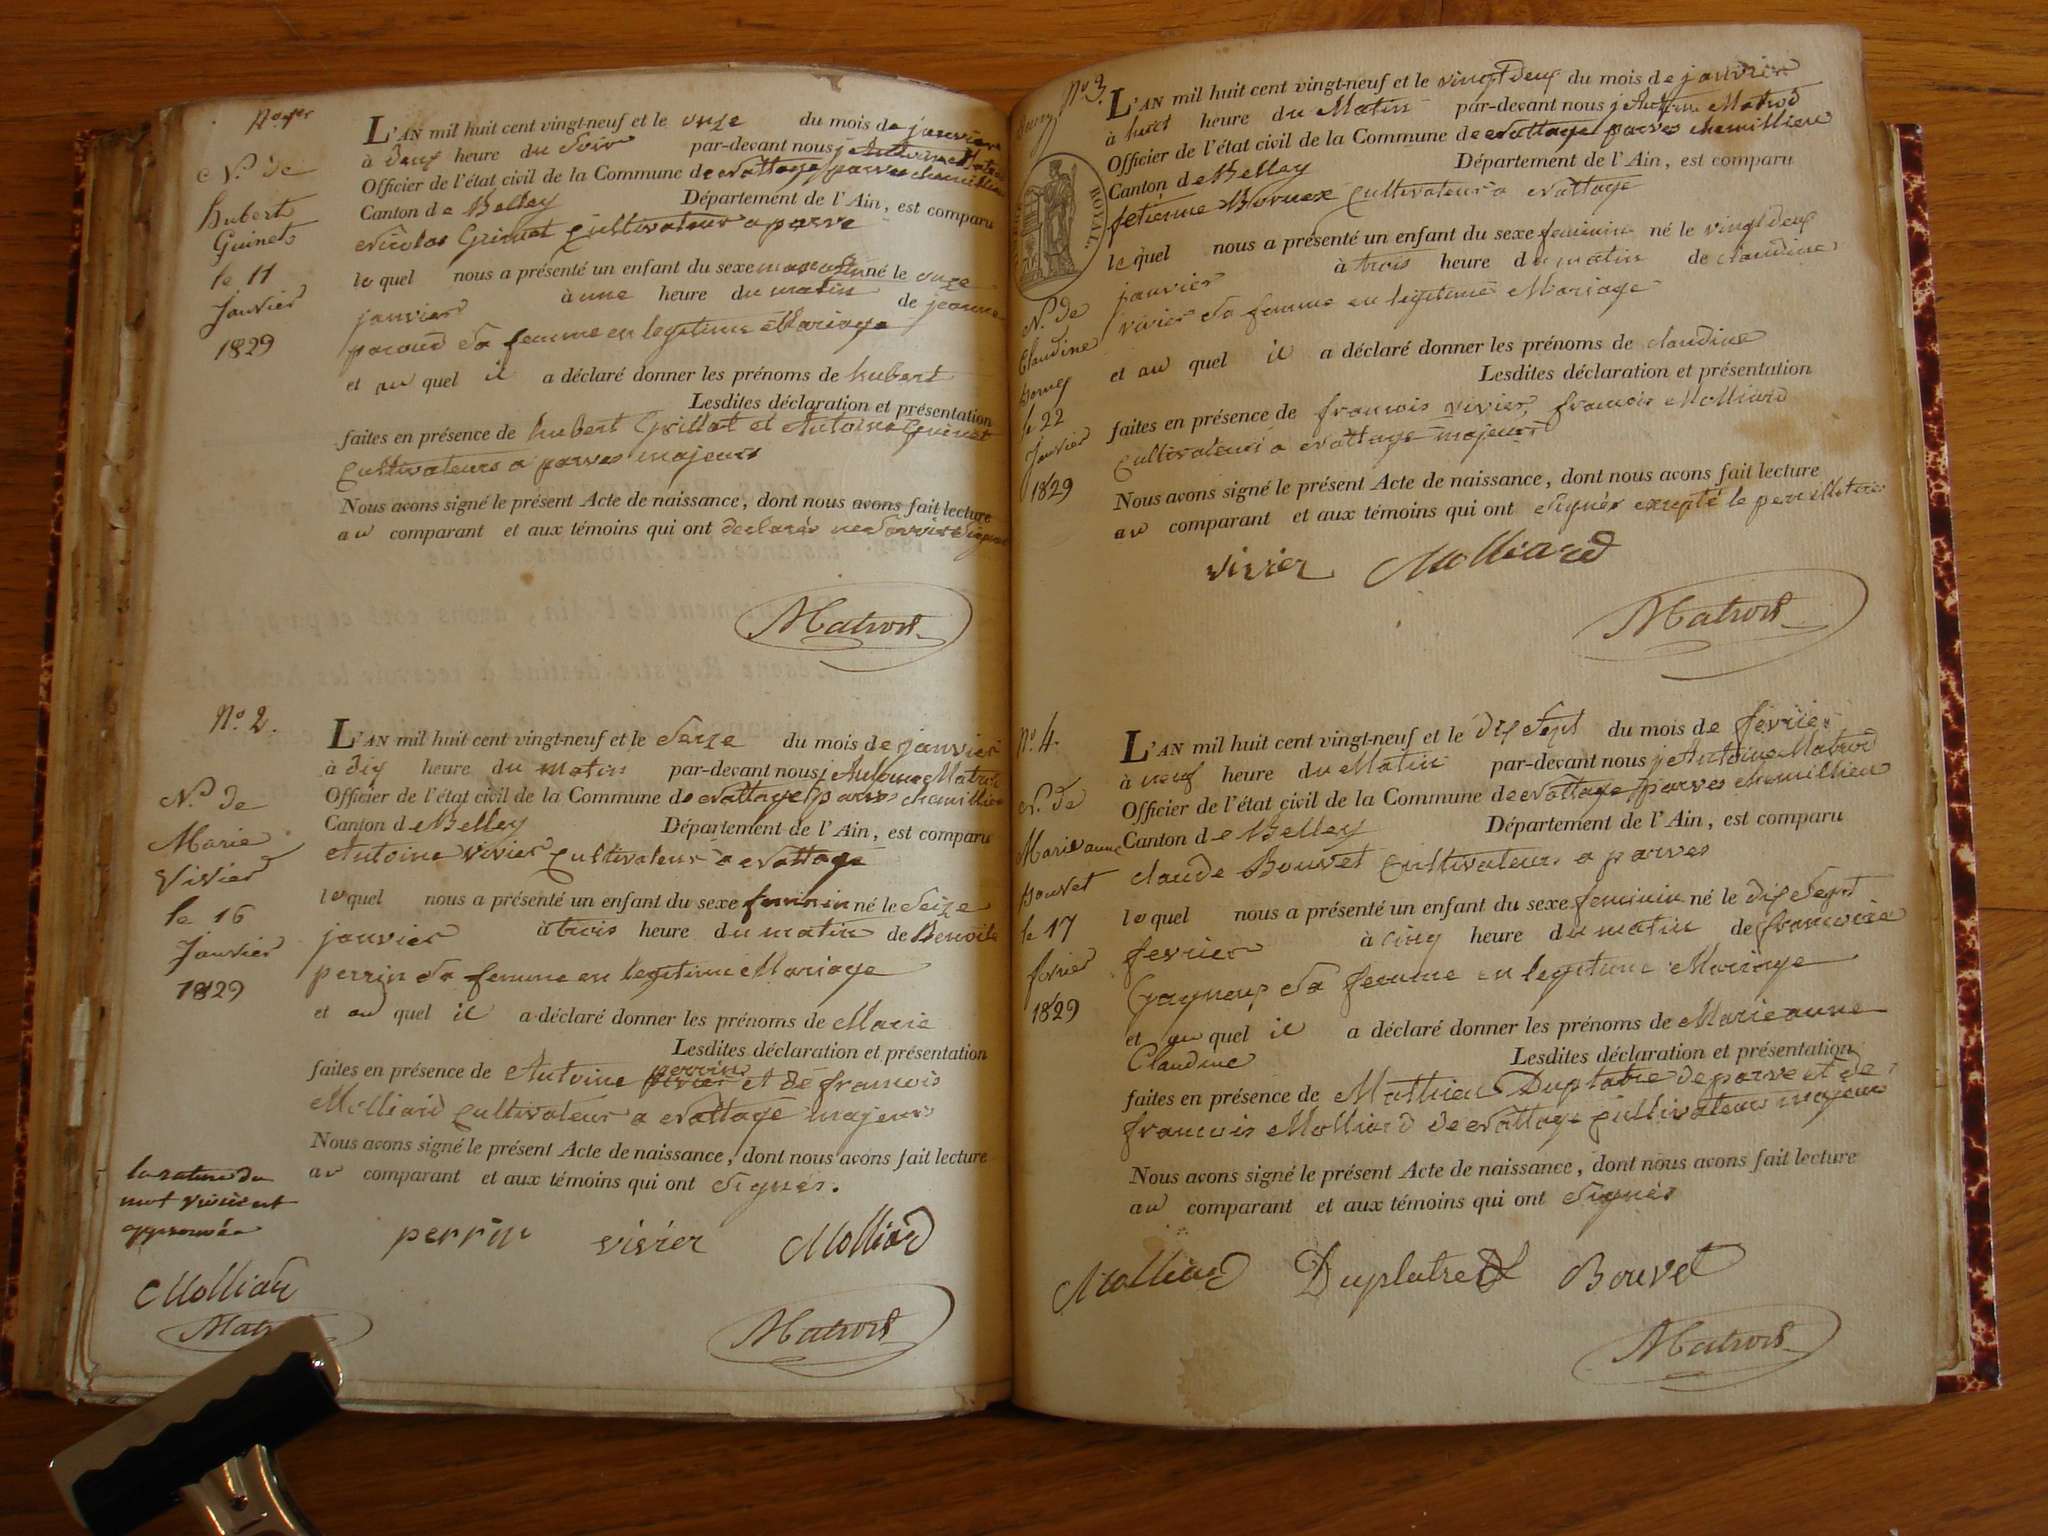 No 1er
N.ce de
hubert
Guinet
le 11
Janvier
1829
L'AN mil huit cent vingt-neuf et le onze du mois de janvier
à deux heure du soir par-devant nous j Antoine Matrod
Officier de l'état civil de la Commune de nattage, parves chemillieu
Canton de Belley Département de l'Ain, est comparu
nicolas Guinet cultivateur a parve
lequel nous a présenté un enfant du sexe masculin né le onze
janvier à une heure du matin de jeanne
sa femme en legitime Mariage
et au quel il a déclaré donner les prénoms de hubert
Lesdites déclaration et présentation
faites en présence de hubert Grillot et Antoine Guinet
cultivateurs a parves majeurs
Nous avons signé le présent Acte de naissance, dont nous avons fait lecture
au comparant et aux témoins qui ont declarés ne savoir signer
Matrod
No. 2.
N.ce de
Marie
Vivier
le 16
Janvier
1829
L'AN mil huit cent vingt-neuf et le Seize du mois de janvier
à dix heure du matin par-devant nous j Antoine Matrod
Officier de l'état civil de la Commune de nattage, parves chemillieu
Canton de Belley Département de l'Ain, est comparu
Antoine vivier cultivateur a nattage
lequel nous a présenté un enfant du sexe feminin né le Seize
janvier à trois heure du matin de Benoite
perrin sa femme en legitime Mariage
et au quel il a déclaré donner les prénoms de Marie
Lesdites déclaration et présentation
perrin
faites en présence de Antoine vivier et de francois
Molliard cultivateur a nattage majeurs
Nous avons signé le présent Acte de naissance, dont nous avons fait lecture
au comparant et aux témoins qui ont signés.
la rature du
mot vivier est
approuvée
perrin vivier Molliard
Molliard
Matrod
Matrod
No 3.
ROYAL
N.ce de
Claudine
le 22
Janvier
1829
L'AN mil huit cent vingt-neuf et le vingt deux du mois de janvier
à huit heure du Matin par-devant nous j Antoine Matrod
Officier de l'état civil de la Commune de nattage, parves chemillieu
Canton de Belley Département de l'Ain, est comparu
etienne cultivateur a nattage
lequel nous a présenté un enfant du sexe feminin né le vingt deux
janvier à trois heure du matin de claudine
vivier sa femme en legitime Mariage
et au quel il a déclaré donner les prénoms de claudine
Lesdites déclaration et présentation
faites en présence de francois vivier, francois Molliard
cultivateurs a nattage majeurs
Nous avons signé le présent Acte de naissance, dont nous avons fait lecture
au comparant et aux témoins qui ont signés excepté le pere
vivier Molliard
Matrod
No. 4.
N.ce de
Marie anne
Bouvet
le 17
fevrier
1829
L'AN mil huit cent vingt-neuf et le dix Sept du mois de fevrier
à neuf heure du Matin par-devant nous j Antoine Matrod
Officier de l'état civil de la Commune de nattage, parves chemillieu
Canton de Belley Département de l'Ain, est comparu
claude Bouvet cultivateur a parves
lequel nous a présenté un enfant du sexe feminin né le dix Sept
fevrier à cinq heure du matin de francoise
Gagneux sa femme en legitime Mariage
et au quel il a déclaré donner les prénoms de Marie anne
Claudine Lesdites déclaration et présentation
faites en présence de Mathieu Duplatre de parve et de
francois Molliard de nattage cultivateurs majeurs
Nous avons signé le présent Acte de naissance, dont nous avons fait lecture
au comparant et aux témoins qui ont signés
Molliard Duplatre Bouvet
Matrod